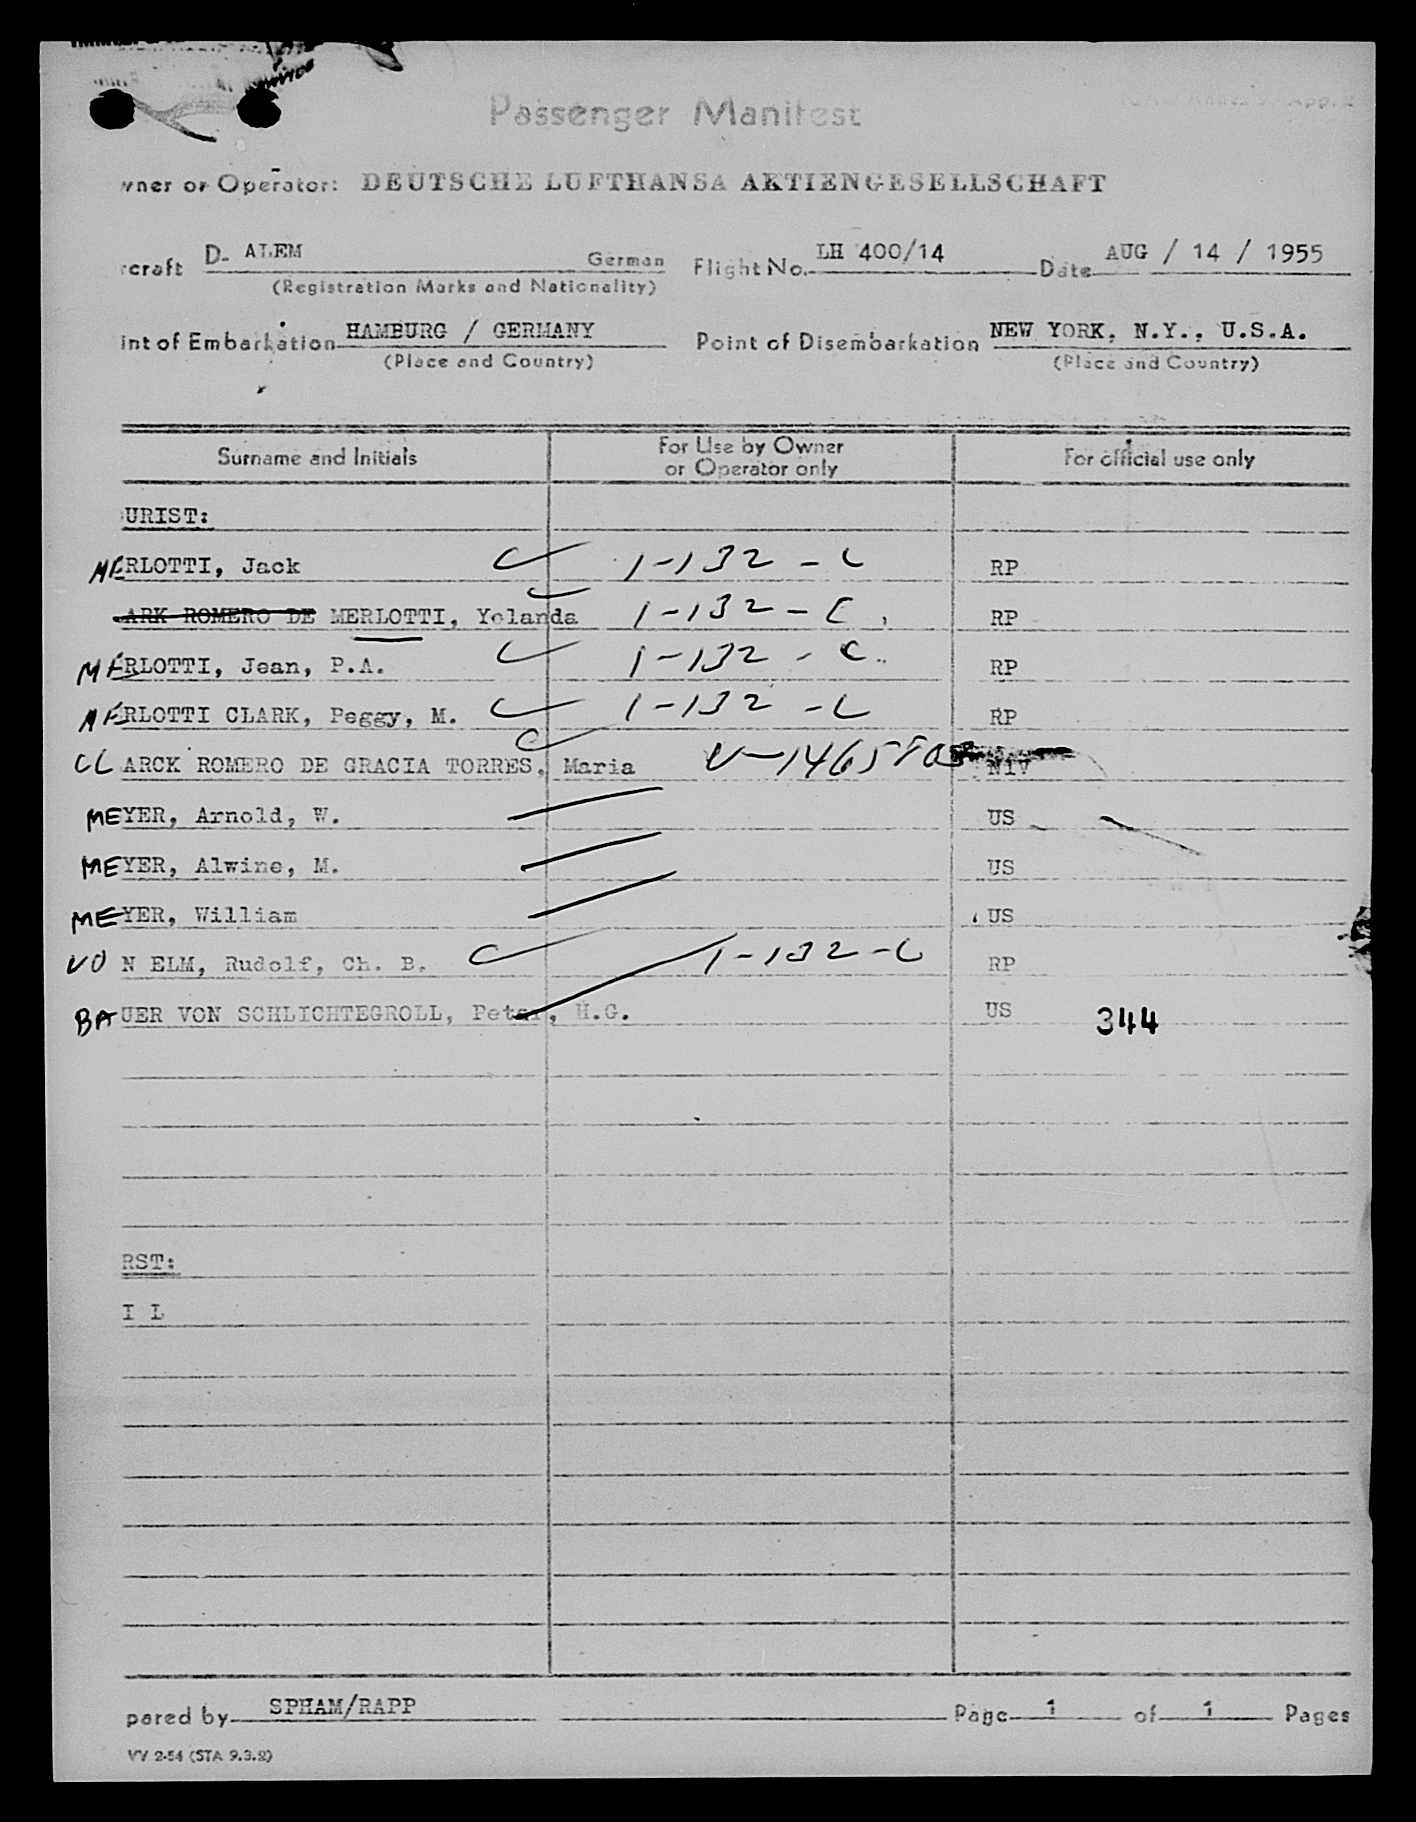 Passenger Manifest
wner or Operator: DEUTSCHE LUFTHANSA AKTIENGESELLSCHAFT
rcraft D- ALEM German Flight No. LH 400/14 Date AUG / 14 / 1955
(Registration Marks and Nationality)
int of Embarkation HAMBURG / GERMANY Point of Disembarkation NEW YORK, N.Y., U.S.A.
(Place and Country) (Place and Country)
Surname and Initials For Use by Owner or Operator only For official use only
URIST:
MERLOTTI, Jack 1-132-C RP
ARK ROMERO DE MERLOTTI, Yolanda 1-132-C RP
MERLOTTI, Jean, P.A. 1-132-C RP
MERLOTTI CLARK, Peggy, M. 1-132-C RP
CLARCK ROMERO DE GRACIA TORRES, Maria V-146580 NIV
MEYER, Arnold, W. US
MEYER, Alwine, M. US
MEYER, William US
VON ELM, Rudolf, Ch. B. 1-132-C RP
BAUER VON SCHLICHTEGROLL, Peter, H.G. US 344
RST:
I L
pared by SPHAM/RAPP Page 1 of 1 Pages
VV 2-54 (STA 9.3.2)